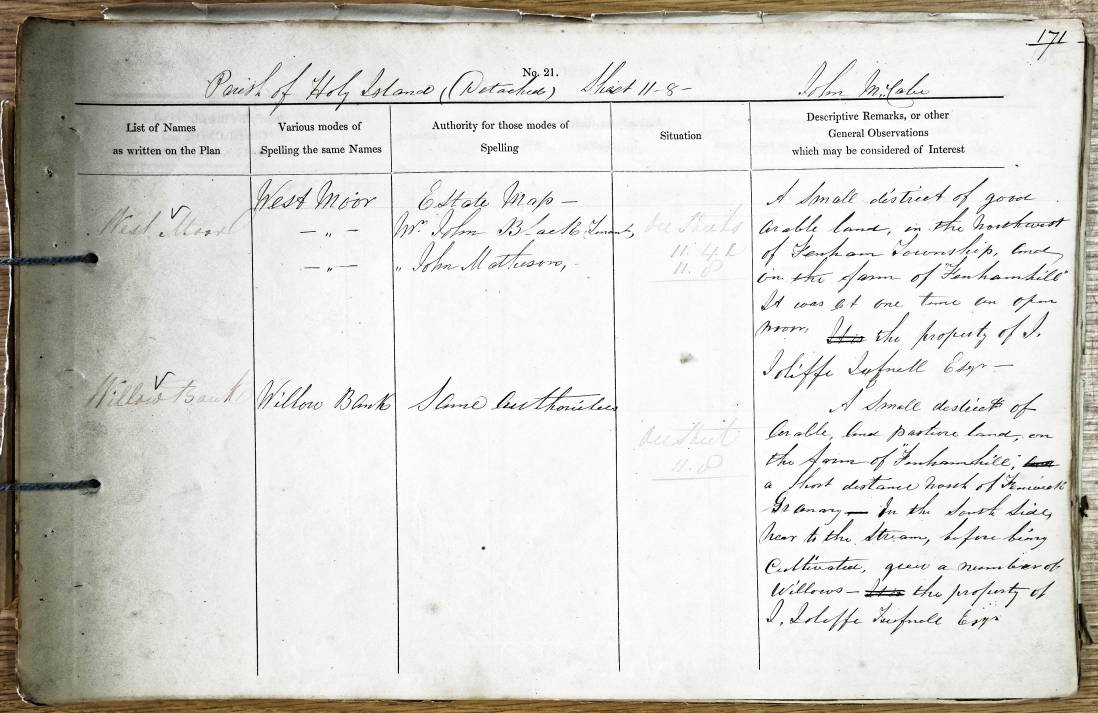 171
No. 21.
Parish of Holy Island, (Detached) Sheet 11-8-
John McCabe
List of Names
as written on the Plan
Various modes of
Spelling the same Names
Authority for those modes of
Spelling
Situation
Descriptive Remarks, or other
General Observations
which may be considered of Interest
West Moor
West Moor
— „ —
— „ —
Estate Map —
Mr. John Black Tenant,
„ John Matheson,
On Sheets
11. 4 &
11. 8
A Small district of good
arable land, in the Northwest
of Fenham Township, and
in the farm of "Fenhamhill"
It was at one time an open
moor, It is the property of J.
Joliffe Tufnell Esqr —
Willow Bank
Willow Bank
Same authorities
On Sheet
11. 8
A Small district of
arable, and pasture land, on
the farm of "Fenhamhill",
a short distance North of Fenwick
Granary — In the South Side,
near to the Stream, before being
Cultivated, grew a number of
Willows — It is the property of
J. Joliffe Tufnell Esqr